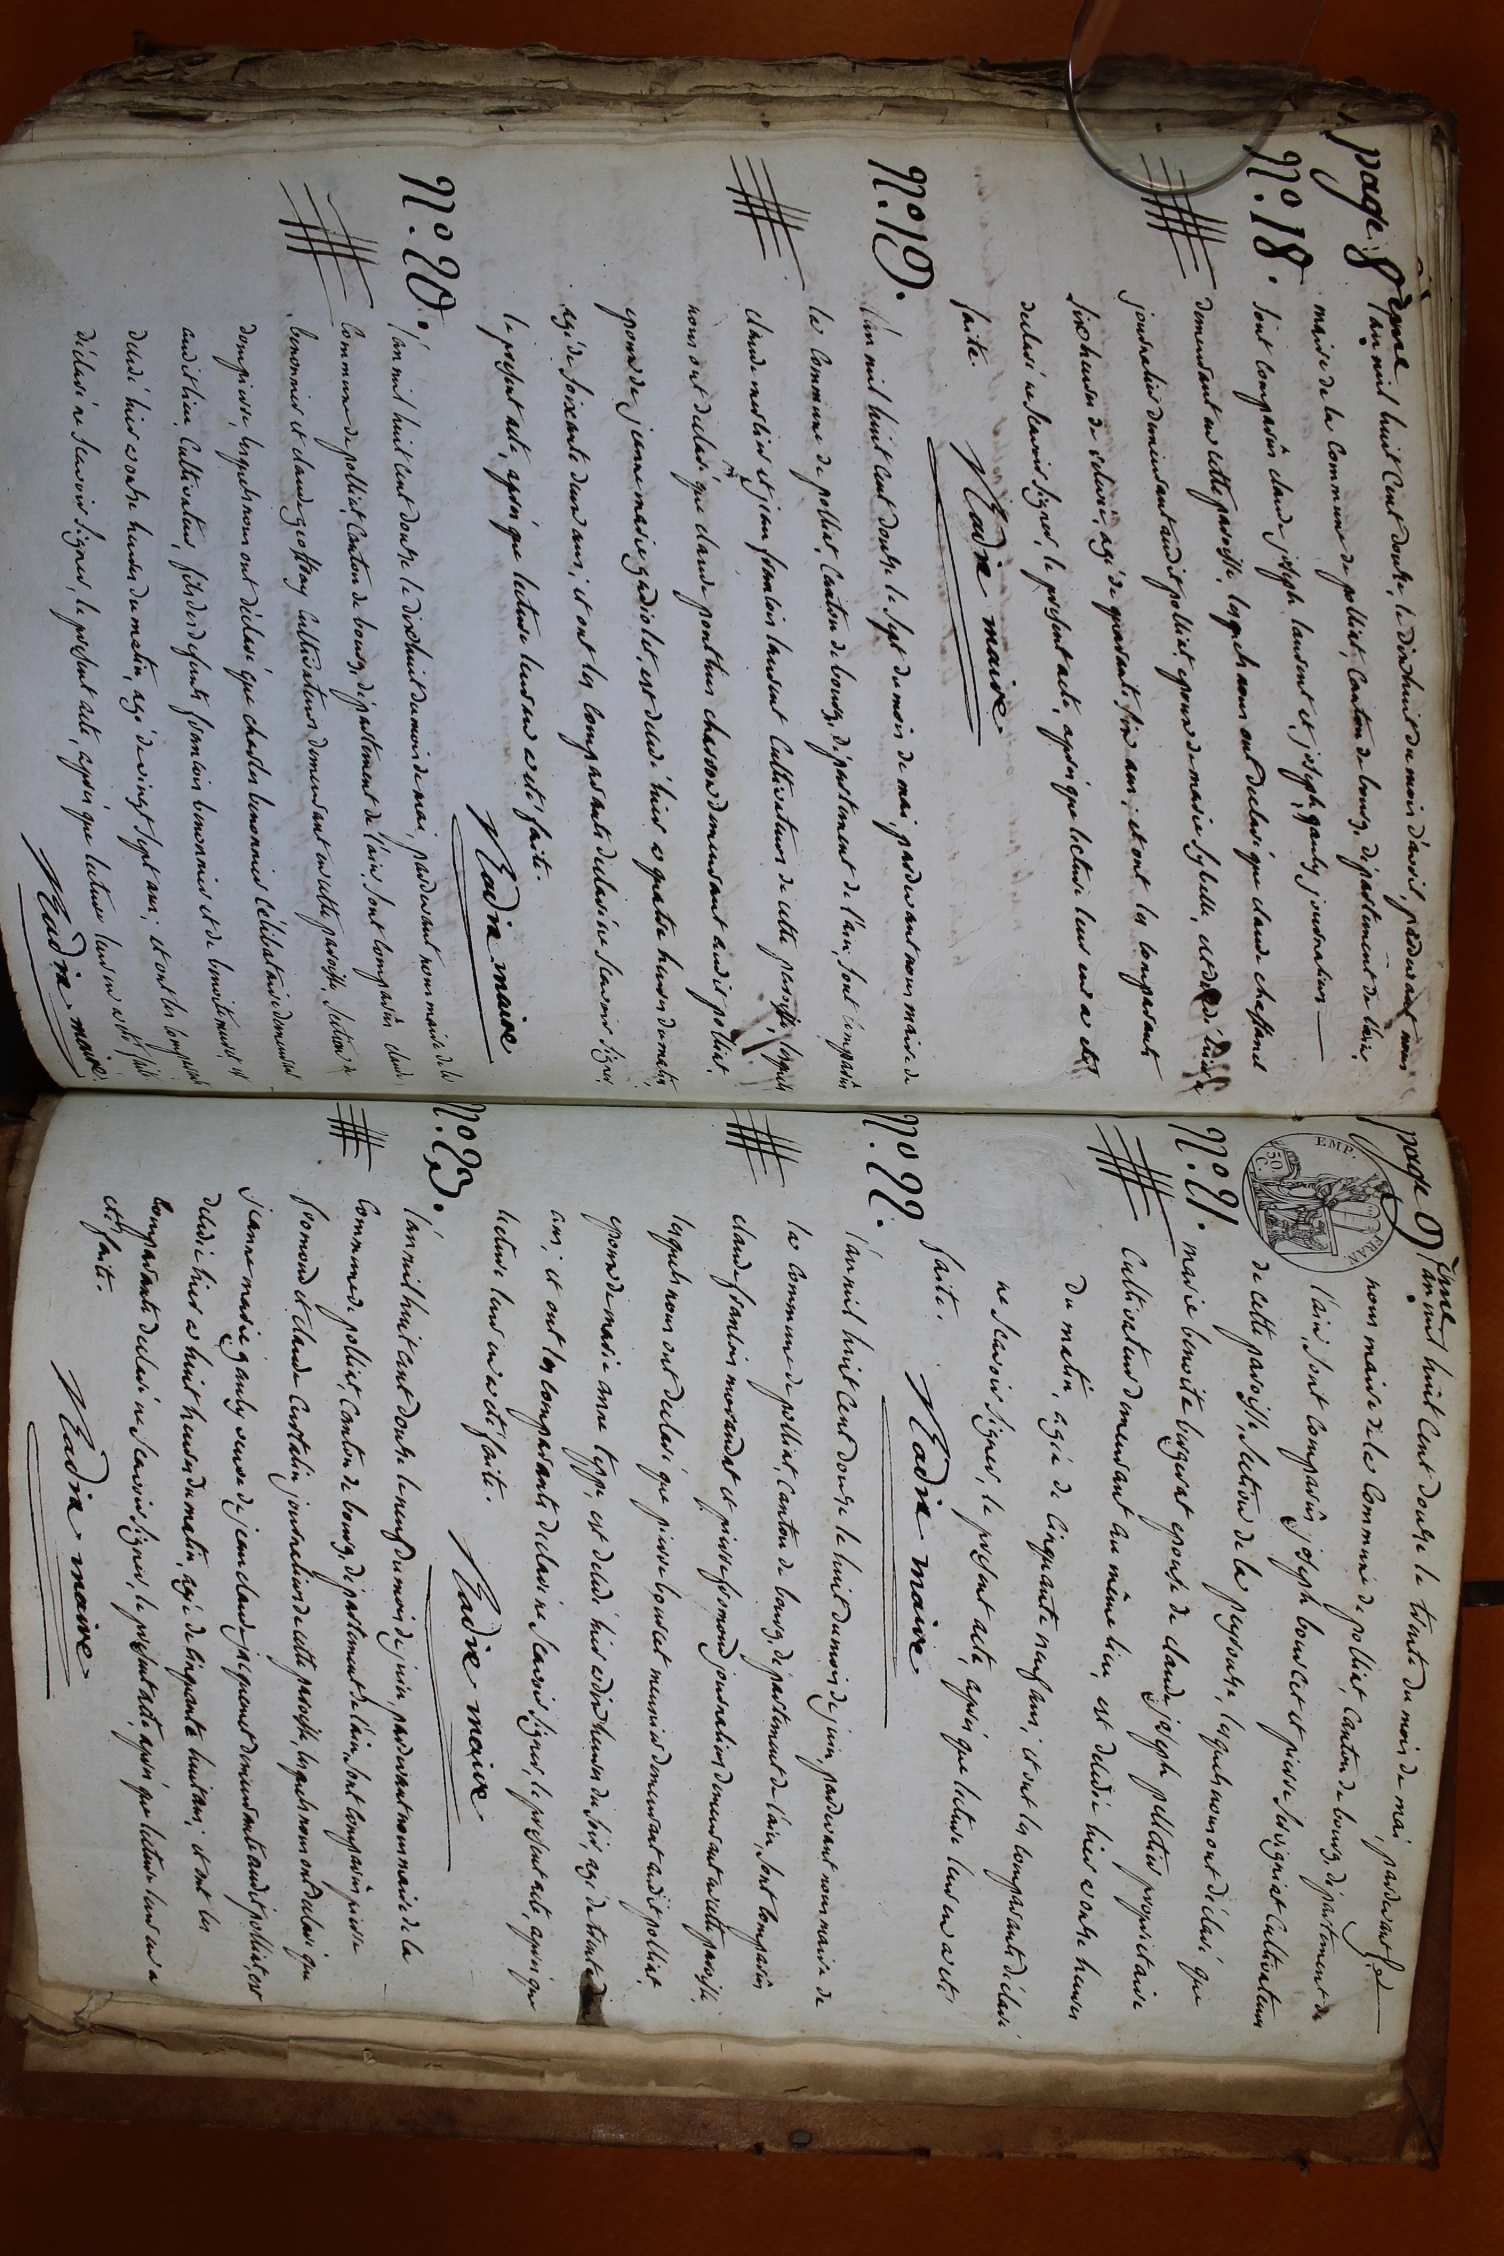 page 8eme
l'an mil huit Cent douze, le dixhuit du mois d'avril, pardevant nous
maire de la Commune de polliat, Canton de bourg, département de l'ain
N.º 18. Sont Comparûs claude joseph laurent et joseph gauly journaliers
demeurant en cette paroisse, lesquels nous ont declaré que claude chaffanel
journalier demeurant audit polliat, epoux de marie sybelle, est
six heures de relevée, agé de quarante six ans; et ont les Comparants
declaré ne Scavoir Signer, le présent acte, après que lecture leur en a eté
faite.
Nadie maire
N.º 19. l'an mil huit Cent douze le Sept du mois de mai, pardevant nous maire de
la Commune de polliat, Canton de bourg, département de l'ain, Sont Comparûs
claude merlin et jean francois laurent Cultivateurs de cette paroisse, lesquels
nous ont déclaré que claude ponthus charron demeurant audit polliat,
epoux de jeanne marie gadiolet, est décédé hier a quatre heures du matin,
agé de soixante deux ans; et ont les Comparants déclaré ne Scavoir Signer
le présent acte, après que lecture leur en a eté faite.
Nadie maire
N.º 20. l'an mil huit Cent douze le dixhuit du mois de mai, pardevant nous maire de la
Commune de polliat, Canton de bourg, département de l'ain, Sont Comparûs claude
benonnier et claude geoffray Cultivateurs demeurant en cette paroisse, Section de
dompierre, lesquels nous ont déclaré que charles benonnier Célibataire demeurant
audit lieu, Cultivateur, fils de defunts francois benonnier et de
décédé hier a onze heures du matin, agé de vingt Sept ans; et ont les Comparants
déclaré ne Scavoir Signer, le présent acte, après que lecture leur en a eté faite
Nadie maire
page 9eme
EMP. FRAN
50 C.
l'an mil huit Cent douze le trente du mois de mai, pardevant
nous maire de la Commune de polliat, Canton de bourg, département de
l'ain, Sont Comparûs joseph bourcet et pierre Cultivateurs
de cette paroisse, Section de la peyrouze, lesquels nous ont déclaré que
N.º 21. marie benoite burgerat epouse de claude joseph pelletier propriétaire
Cultivateur demeurant au même lieu, est décédée hier a onze heures
du matin, agée de Cinquante neuf ans; et ont les Comparants déclaré
ne Scavoir Signer, le présent acte, après que lecture leur en a eté
faite.
Nadie maire
N.º 22. l'an mil huit Cent douze le huit du mois de juin, pardevant nous maire de
la Commune de polliat, Canton de bourg, département de l'ain, Sont Comparûs
claude francois morandat et pierre fromond journaliers demeurant en cette paroisse,
lesquels nous ont declaré que pierre bourcet meunier demeurant audit polliat,
epoux de marie anne teppe, est décédé hier a dix heures du soir, agé de trente
ans; et ont les Comparants déclaré ne Scavoir Signer, le présent acte, après que
lecture leur en a eté faite.
Nadie maire
N.º 23. l'an mil huit Cent douze le neuf du mois de juin, pardevant nous maire de la
Commune de polliat, Canton de bourg, département de l'ain, Sont Comparûs pierre
fromond et claude Curtalin journaliers de cette paroisse, lesquels nous ont declaré que
jeanne marie gauly veuve de jean claude jacquemet demeurante audit polliat, est
décédée hier a huit heures du matin, agée de Cinquante huit ans; et ont les
Comparants declaré ne Scavoir Signer, le présent acte, après que lecture leur en a
eté faite.
Nadie maire